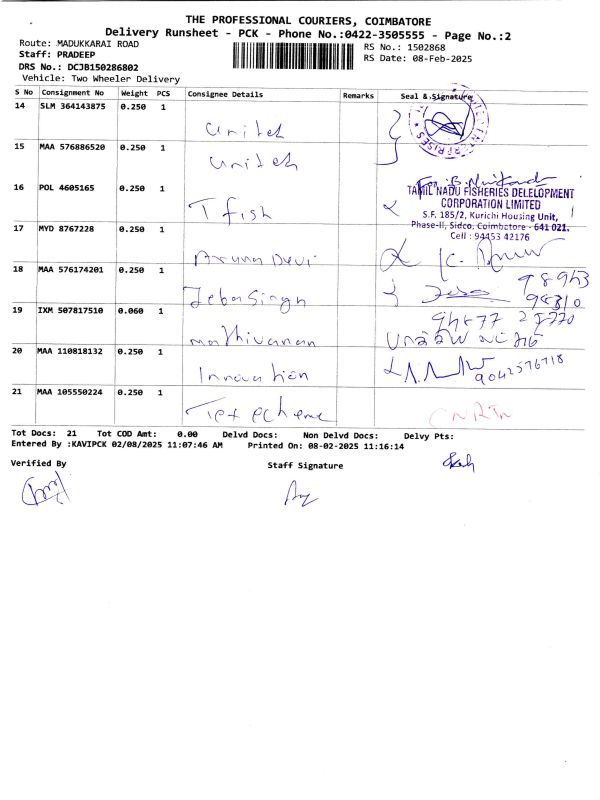 THE PROFESSIONAL COURIERS, COIMBATORE
Delivery Runsheet - PCK - Phone No.:0422-3505555 - Page No.:2
Route: MADUKKARAI ROAD
RS No.: 1502868
Staff: PRADEEP
RS Date: 08-Feb-2025
DRS No.: DCJB150286802
Vehicle: Two Wheeler Delivery
S No Consignment No Weight PCS Consignee Details Remarks Seal & Signature
14 SLM 364143875 0.250 1 United
15 MAA 576886520 0.250 1 United
ENTERPRISES
16 POL 4605165 0.250 1 T fish
TAMIL NADU FISHERIES DELELOPMENT
CORPORATION LIMITED
S.F. 185/2, Kurichi Housing Unit,
Phase-II, Sidco, Coimbatore - 641 021.
Cell : 94453 42176
17 MYD 8767228 0.250 1 Aruna Devi
18 MAA 576174201 0.250 1 Jeba Singh
19 IXM 507817510 0.060 1 mathivanan
20 MAA 110818132 0.250 1 Innovation
9042576718
21 MAA 105550224 0.250 1
Tot Docs: 21 Tot COD Amt: 0.00 Delvd Docs: Non Delvd Docs: Delvy Pts:
Entered By :KAVIPCK 02/08/2025 11:07:46 AM Printed On: 08-02-2025 11:16:14
Verified By
Staff Signature